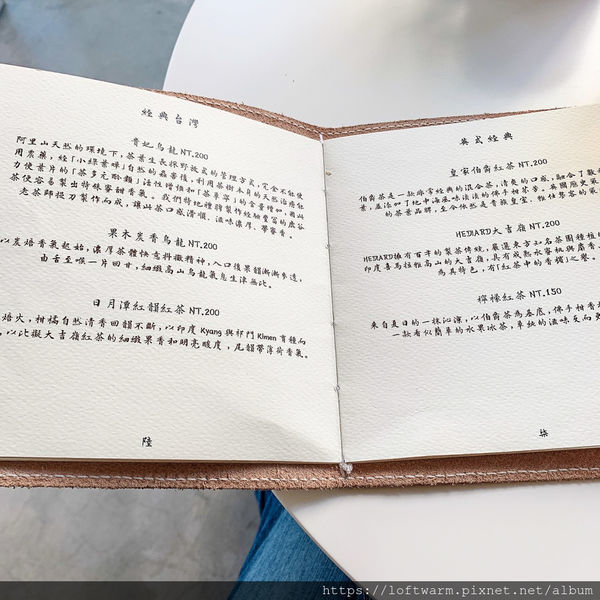 經典台灣
貴妃烏龍 NT.200
阿里山天然的環境下,茶葉生長採野放式的管理方式,完全不施使
用農藥,經「小綠葉蟬」自然的蟲害後,利用茶樹本身的天然治療能
力使葉片的「茶多元酚類」活性增強和「茶單寧」的含量增加,因此
茶使容易製出特殊蜜甜香氣。我們特地禮聘製作經驗豐富的鹿谷
老茶師操刀製作而成,讓此茶口感滑順、滋味濃厚、帶蜜香。
果木炭香烏龍 NT.200
以炭焙香氣起始,濃厚茶體快意抖擻精神,入口後果韻漸漸滲透,
由舌至喉一片回甘,細緻高山烏龍氣息生津無比。
日月潭紅韻紅茶 NT.200
焙火,柑橘自然清香回韻不斷,以印度 Kyang 與祁門 Kimen 育種而
,以比擬大吉嶺紅茶的細緻果香和明亮酸度,尾韻帶薄荷香氣。
陸
英式經典
皇家伯爵紅茶 NT.200
伯爵茶是一款非常經典的混合茶,清爽的口感,融合了
葉,並添加了地中海風味濃濃的佛手柑茶香。英國歷史
的茶葉品牌,至今依然是貴族皇室、雅仕男客的
HEDIARD大吉嶺 NT.200
HEDIARD擁有百年的製茶傳統,嚴選東方知名茶園種植
印度喜馬拉雅高山的大吉嶺,具有成熟水蜜桃與麝香
為其特色,有「紅茶中的香檳」之譽。
檸檬紅茶 NT.150
來自夏日的一抹沁涼,以伯爵茶為基底,佛手柑香
一款看似簡單的水果冰茶,單純的滋味反而更
柒
https://loftwarm.pixnet.net/album